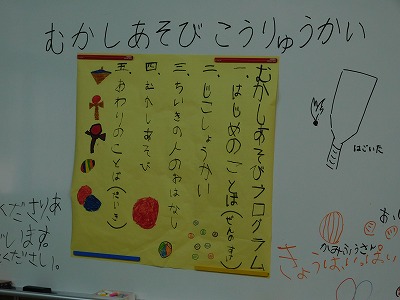 むかしあそび こうりゅうかい
むかしあそびプログラム
一、はじめのことば(ぜんの
二、じこしょうかい
三、ちいきの人のおはなし
四、むかしあそび
五、おわりのことば(
はごいた
かみふうせん
きょうはいっぱい
くださりあ
します。
ください。